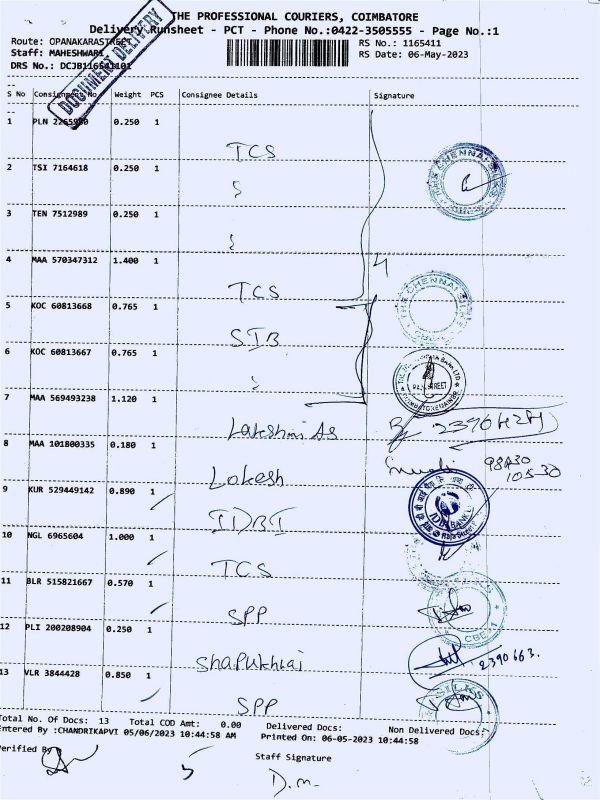 THE PROFESSIONAL COURIERS, COIMBATORE
Delivery Runsheet - PCT - Phone No.:0422-3505555 - Page No.:1
Route: OPANAKARASTREET
RS No.: 1165411
Staff: MAHESHWARI
RS Date: 06-May-2023
DRS No.: DCJB116541101
DOCUMENT DELIVERY
S No Consignment No Weight PCS Consignee Details Signature
1 PLN 0.250 1 TCS
2 TSI 7164618 0.250 1
THE CHENNAI SILKS
3 TEN 7512989 0.250 1
4 MAA 570347312 1.400 1 TCS
4
THE CHENNAI SILKS
5 KOC 60813668 0.765 1 SIB
6 KOC 60813667 0.765 1
7 MAA 569493238 1.120 1 Lakshmi
8 MAA 101800335 0.180 1 Lokesh
9 KUR 529449142 0.890 1 IDBI
IDBI BANK
10 NGL 6965604 1.000 1 TCS
11 BLR 515821667 0.570 1 SPP
CBE-1
12 PLI 200208904 0.250 1
2390663.
13 VLR 3844428 0.850 1 SPP
SILKS
Total No. Of Docs: 13 Total COD Amt: 0.00 Delivered Docs: Non Delivered Docs:
Entered By :CHANDRIKAPVI 05/06/2023 10:44:58 AM Printed On: 06-05-2023 10:44:58
Verified By
Staff Signature
D.m.